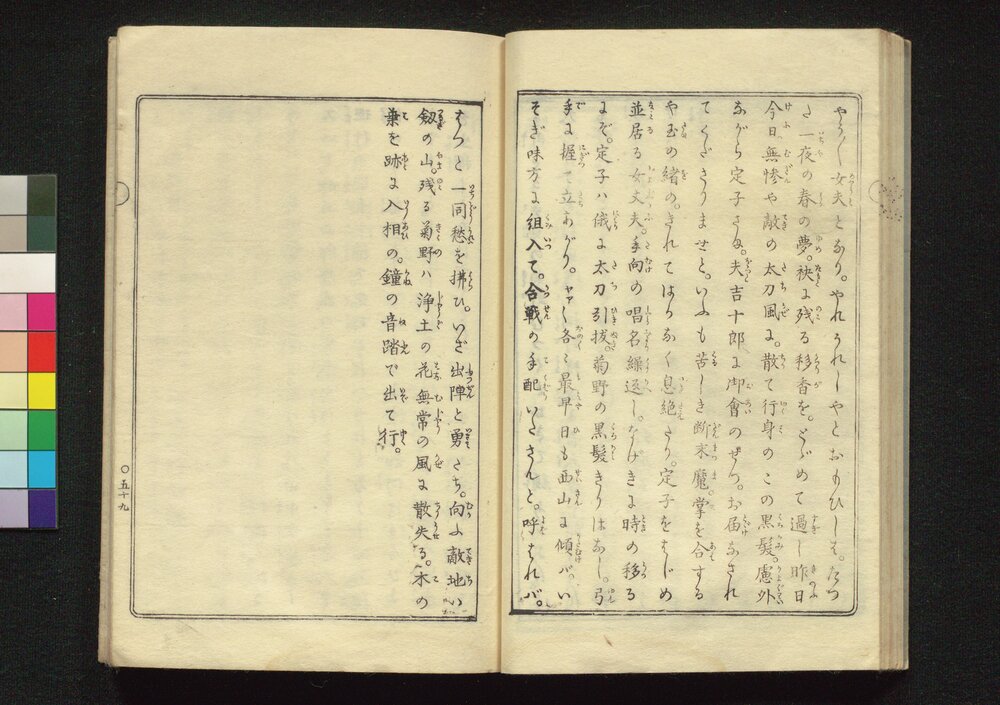 やう〳〵女夫となり。やれうれしやとおもひしは。たつ
た一夜の春の夢。袂に残る移香を。とゞめて過し昨日
今日無惨や敵の太刀風に。散て行身のこの黒髪。慮外
ながら定子さま。夫吉十郎に御會のせつ。お届なされ
てくださりませと。いふも苦しき断末魔。掌を合する
や玉の緒の。きれてはりなく息絶たり。定子をはじめ
並居る女丈夫。手向の唱名繰返し。なげきに時の移る
にぞ。定子ハ俄に太刀引抜。菊野の黒髪きりはなし。弓
手に握て立あがり。ヤァ〳〵各〻最早日も西山に傾バ。い
そぎ味方に組入て。合戦の手配いたさんと。呼はれバ。
はつと一同愁を拂ひ。いざ出陣と勇たち。向ふ敵地い
劔の山。残る菊野ハ浄土の花無常の風に散失る。木の
葉を跡に入相の。鐘の音踏で出て行。
〇五十九